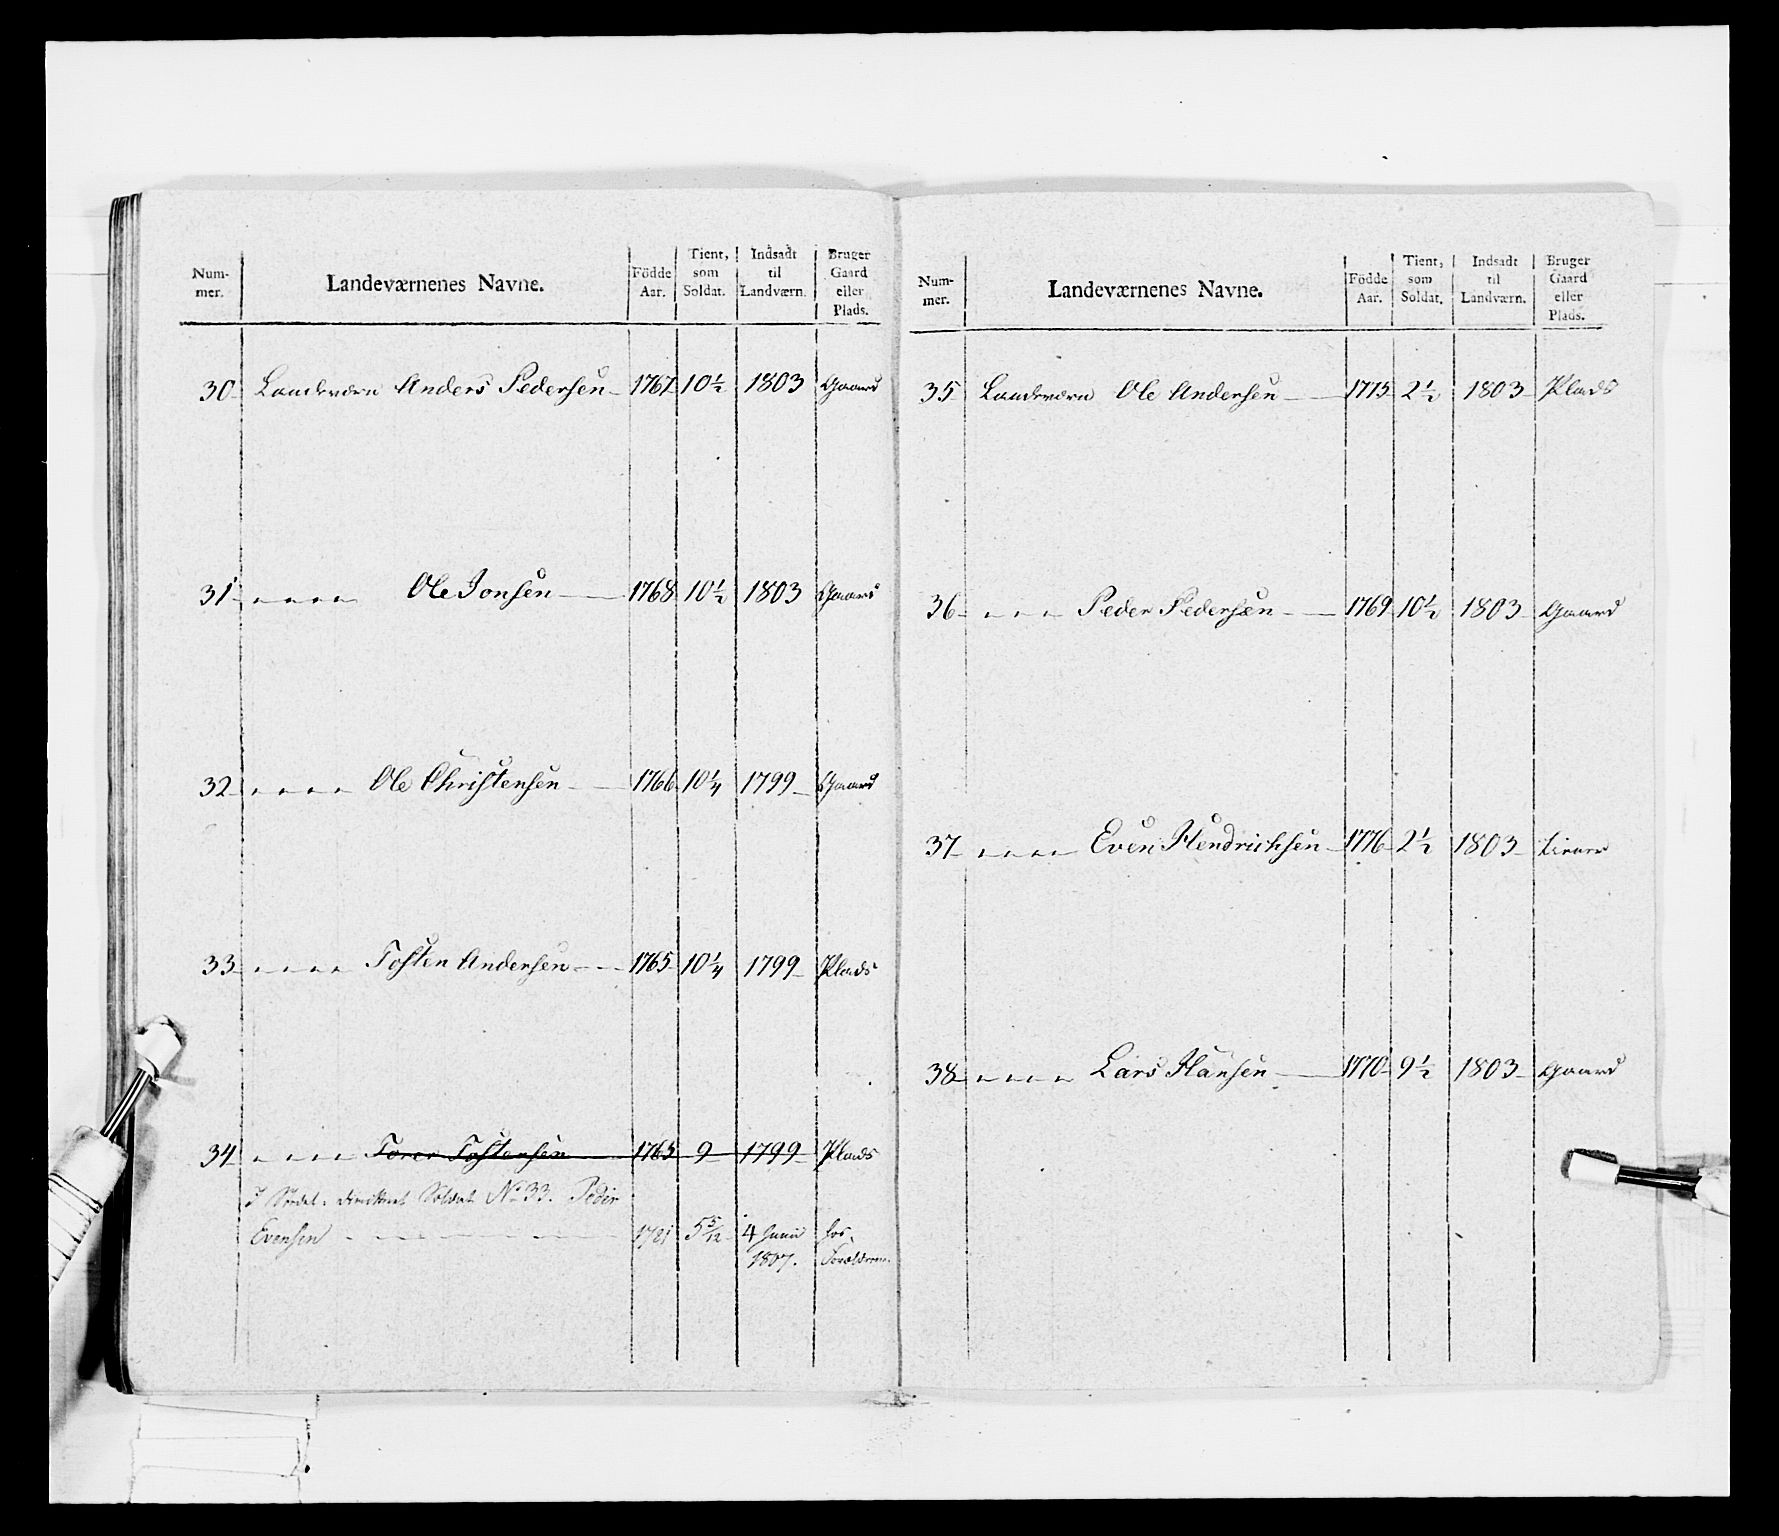 Num-
mer.
Landeværnenes Navne.
Födde
Aar.
Tient,
som
Soldat.
Indsadt
til
Landværn.
Bruger
Gaard
eller
Plads.
30 Landeværn Anders Pedersen 1767 10½ 1803 Gaard
31 Ole Jonsen 1768 10½ 1803 Gaard
32 Ole Christensen 1766 10¼ 1799 Gaard
33 Tosten Andersen 1765 10¼ 1799 Plads
34 Torer Tostensen 1765 9 1799 Plads
I Stedet dimittert Soldat No 33. Peder
Evensen 1781 5 5/12 4 Junii hos
1807. Forældrene
Num-
mer.
Landeværnenes Navne.
Födde
Aar.
Tient,
som
Soldat.
Indsadt
til
Landværn.
Bruger
Gaard
eller
Plads.
35 Landeværn Ole Andersen 1775 2½ 1803 Plads
36 Peder Pedersen 1769 10½ 1803 Gaard
37 Even Hendrichsen 1776 2½ 1803 tiener
38 Lars Hansen 1770 9½ 1803 Gaard